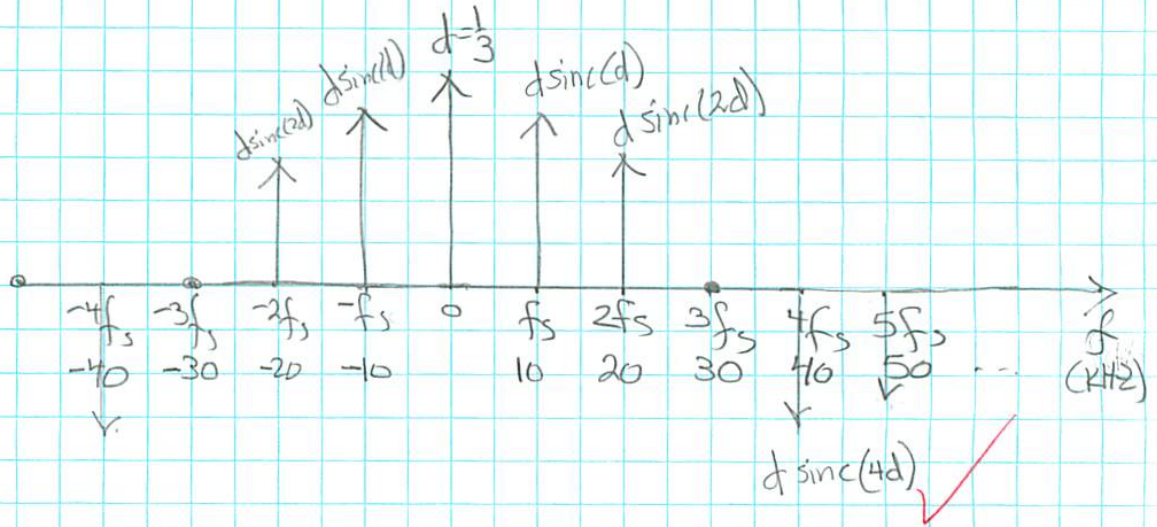 d=1/3
dsinc(2d) dsinc(d) dsinc(d) d sinc(2d)
-4fs -3fs -2fs -fs 0 fs 2fs 3fs 4fs 5fs f
-40 -30 -20 -10 10 20 30 40 50 ... (KHz)
d sinc(4d)